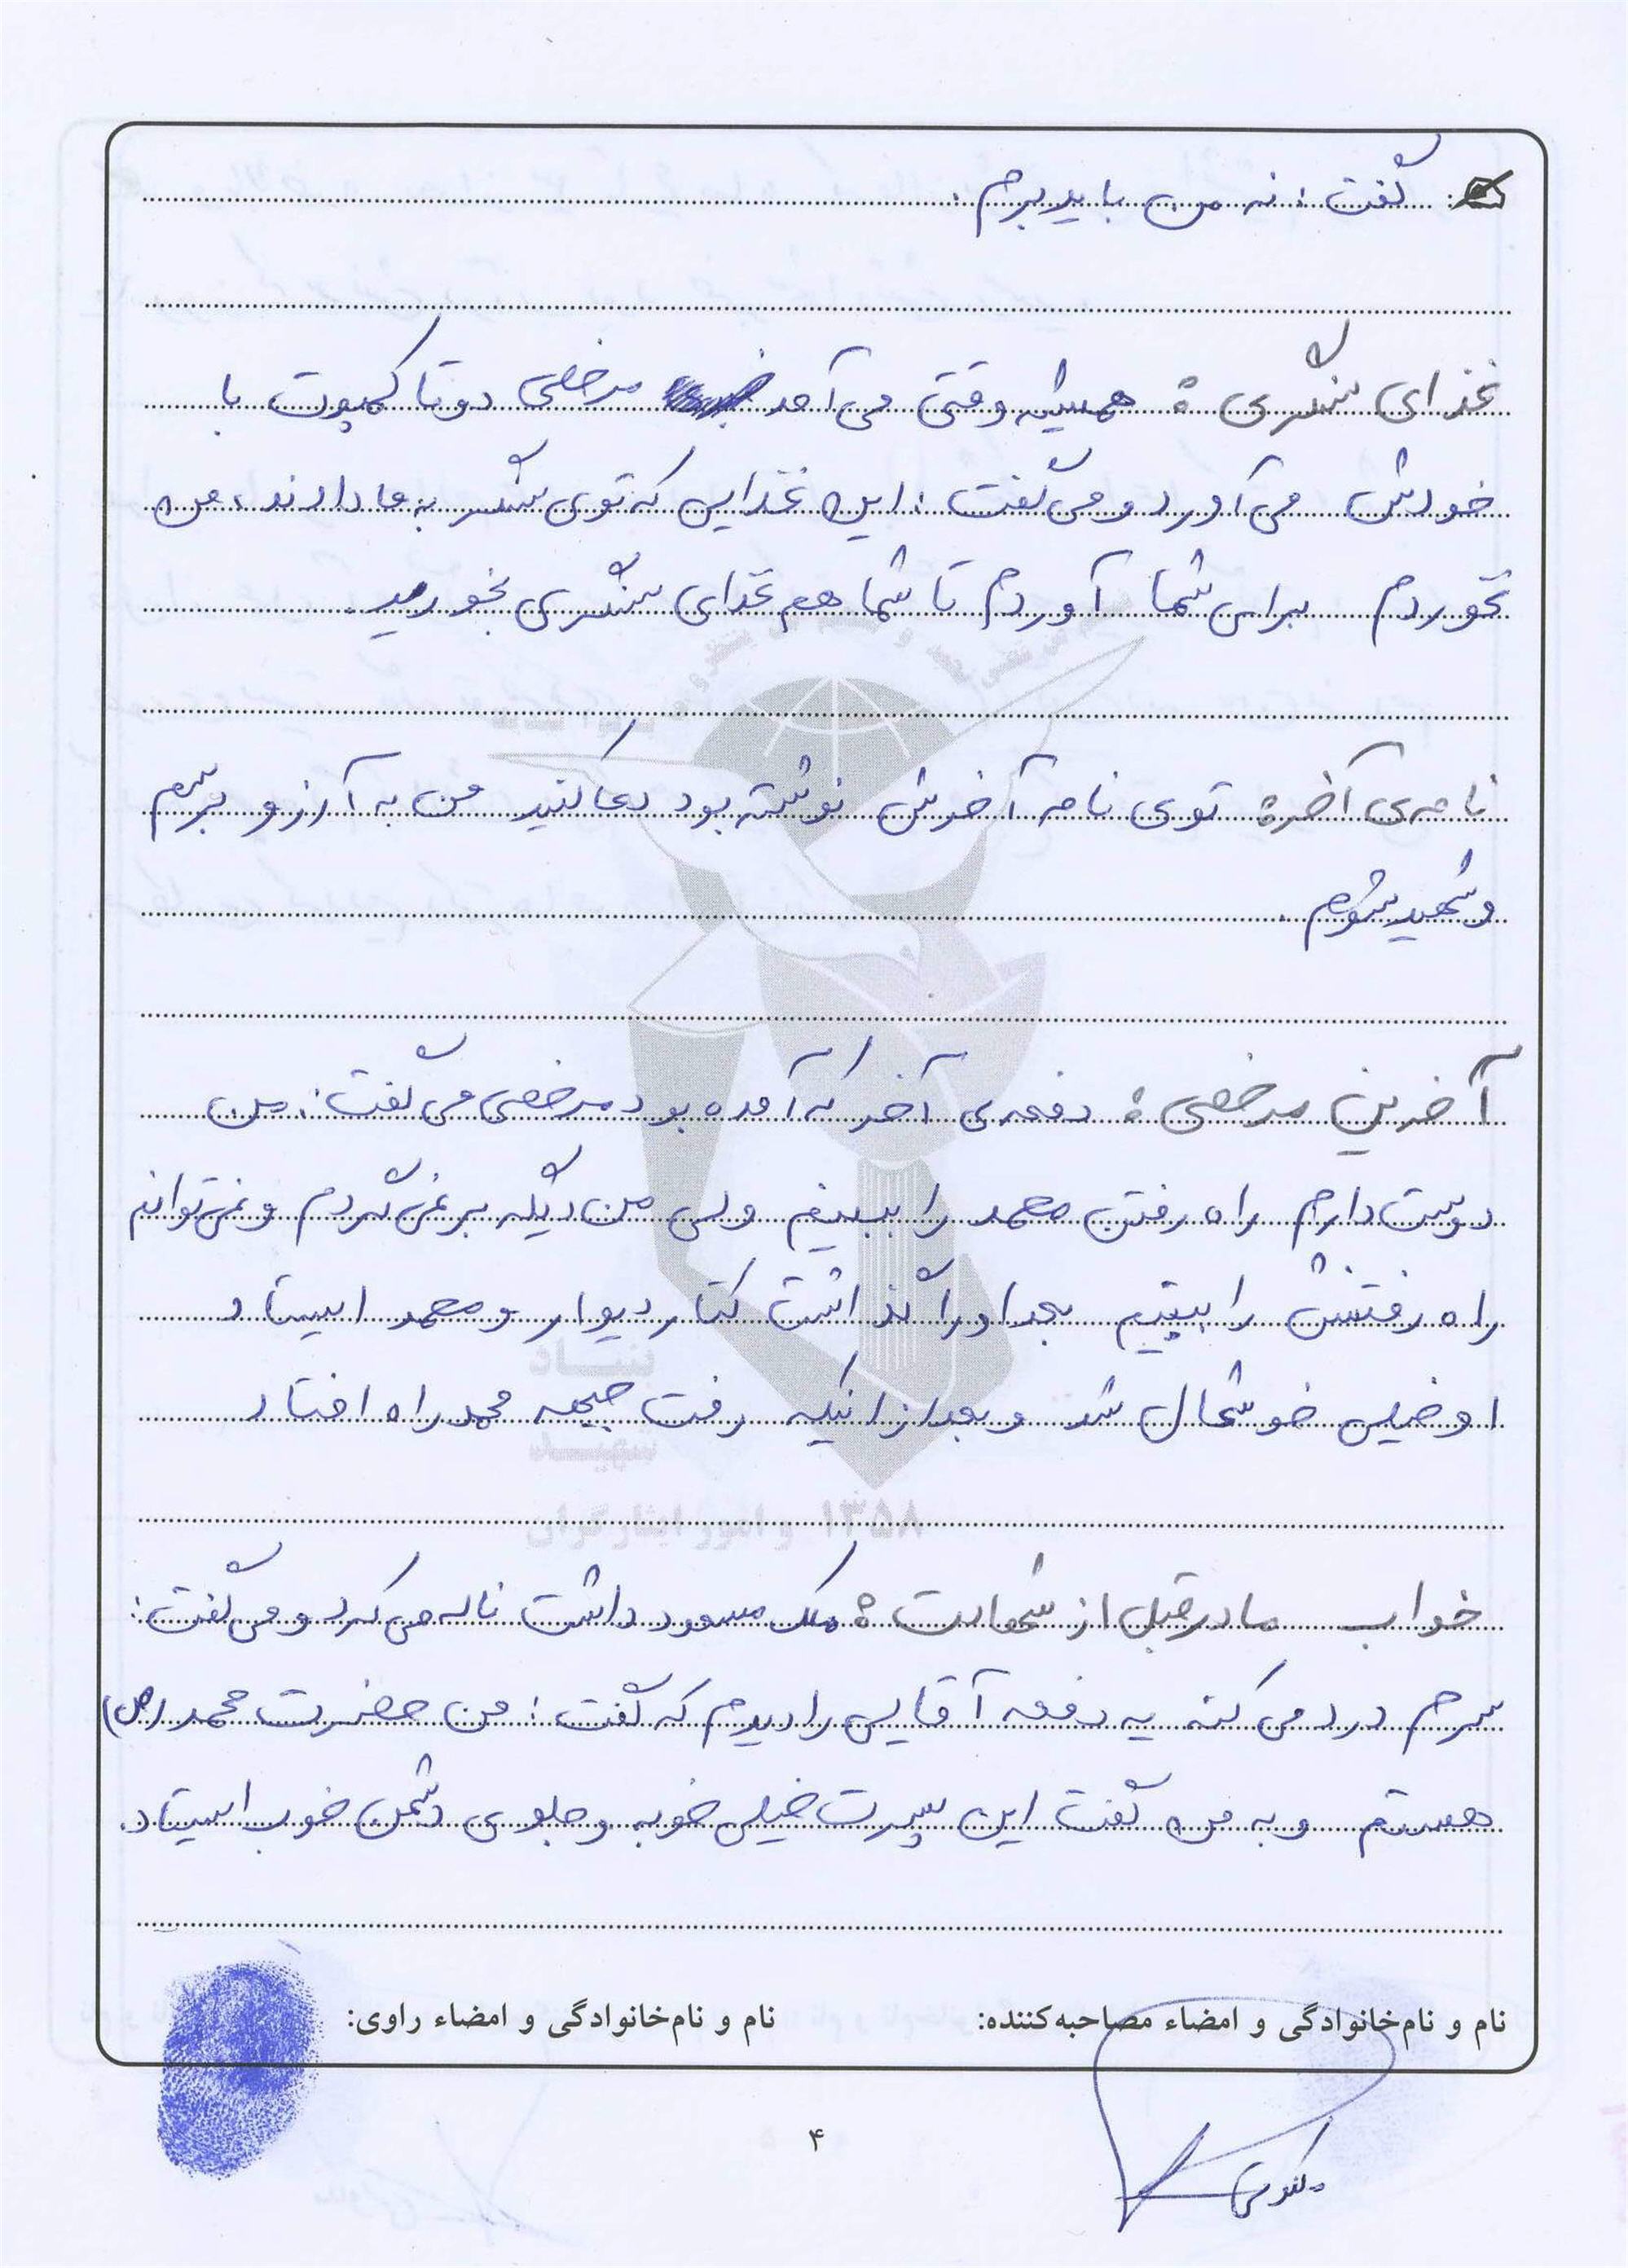 گفت: نه من باید برم.
غذای سنگری: همیشه وقتی می‌آمد مرخصی دوتا کمپوت با
خودش می‌آورد و می‌گفت: این غذایی که توی سنگر به ما دادند، من
نخوردم برای شما آوردم تا شما هم غذای سنگری بخورید.
نامه‌ی آخر: توی نامه آخرش نوشته بود دعا کنید من به آرزو برسم
و شهید شوم.
آخرین مرخصی: دفعه‌ی آخر که آمده بود مرخصی می‌گفت: من
دوست دارم راه رفتن محمد را ببینم ولی من دیگه برنمی‌گردم و نمی‌توانم
راه رفتنش را ببینم بعد او را گذاشت کنار دیوار و محمد ایستاد
او خیلی خوشحال شد و بعد از اینکه رفت جبهه محمد راه افتاد
بنیاد
شهید
و امور ایثارگران ۱۳۵۸
خواب مادر قبل از شهادت: مسعود داشت ناله می‌کرد و می‌گفت:
سرم درد می‌کنه یه دفعه آقایی را دیدم که گفت: من حضرت محمد (ص)
هستم و به من گفت این پسرت خیلی خوبه و جلوی دشمن خوب ایستاد.
نام و نام‌خانوادگی و امضاء مصاحبه‌کننده: نام و نام‌خانوادگی و امضاء راوی:
۴